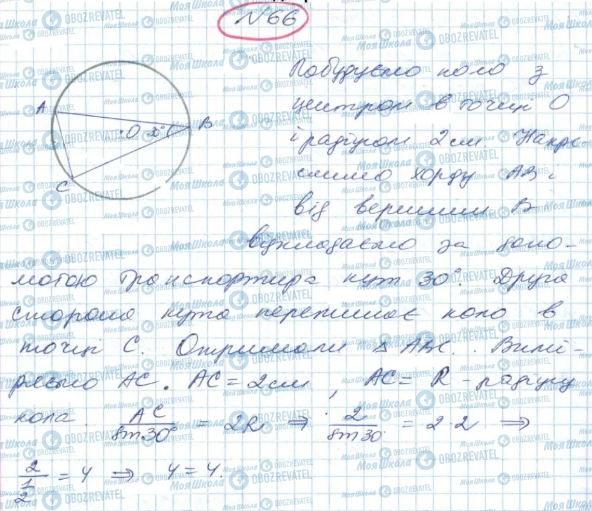 №66
Побудуємо коло з
центром в точці О
і радіусом 2 см. Накре-
слимо хорду АВ і
від вершини В
відкладаємо за допо-
могою транспортира кут 30°. Друга
сторона кута перетинає коло в
точці С. Отримали △ АВС. Вимі-
ряємо АС. АС = 2 см, АС = R - радіусу
кола AC/sin30° = 2R ⇒ 2/sin30 = 2·2 ⇒
2/(1/2) = 4 ⇒ 4 = 4.
A
B
C
O
МояШкола OBOZREVATEL